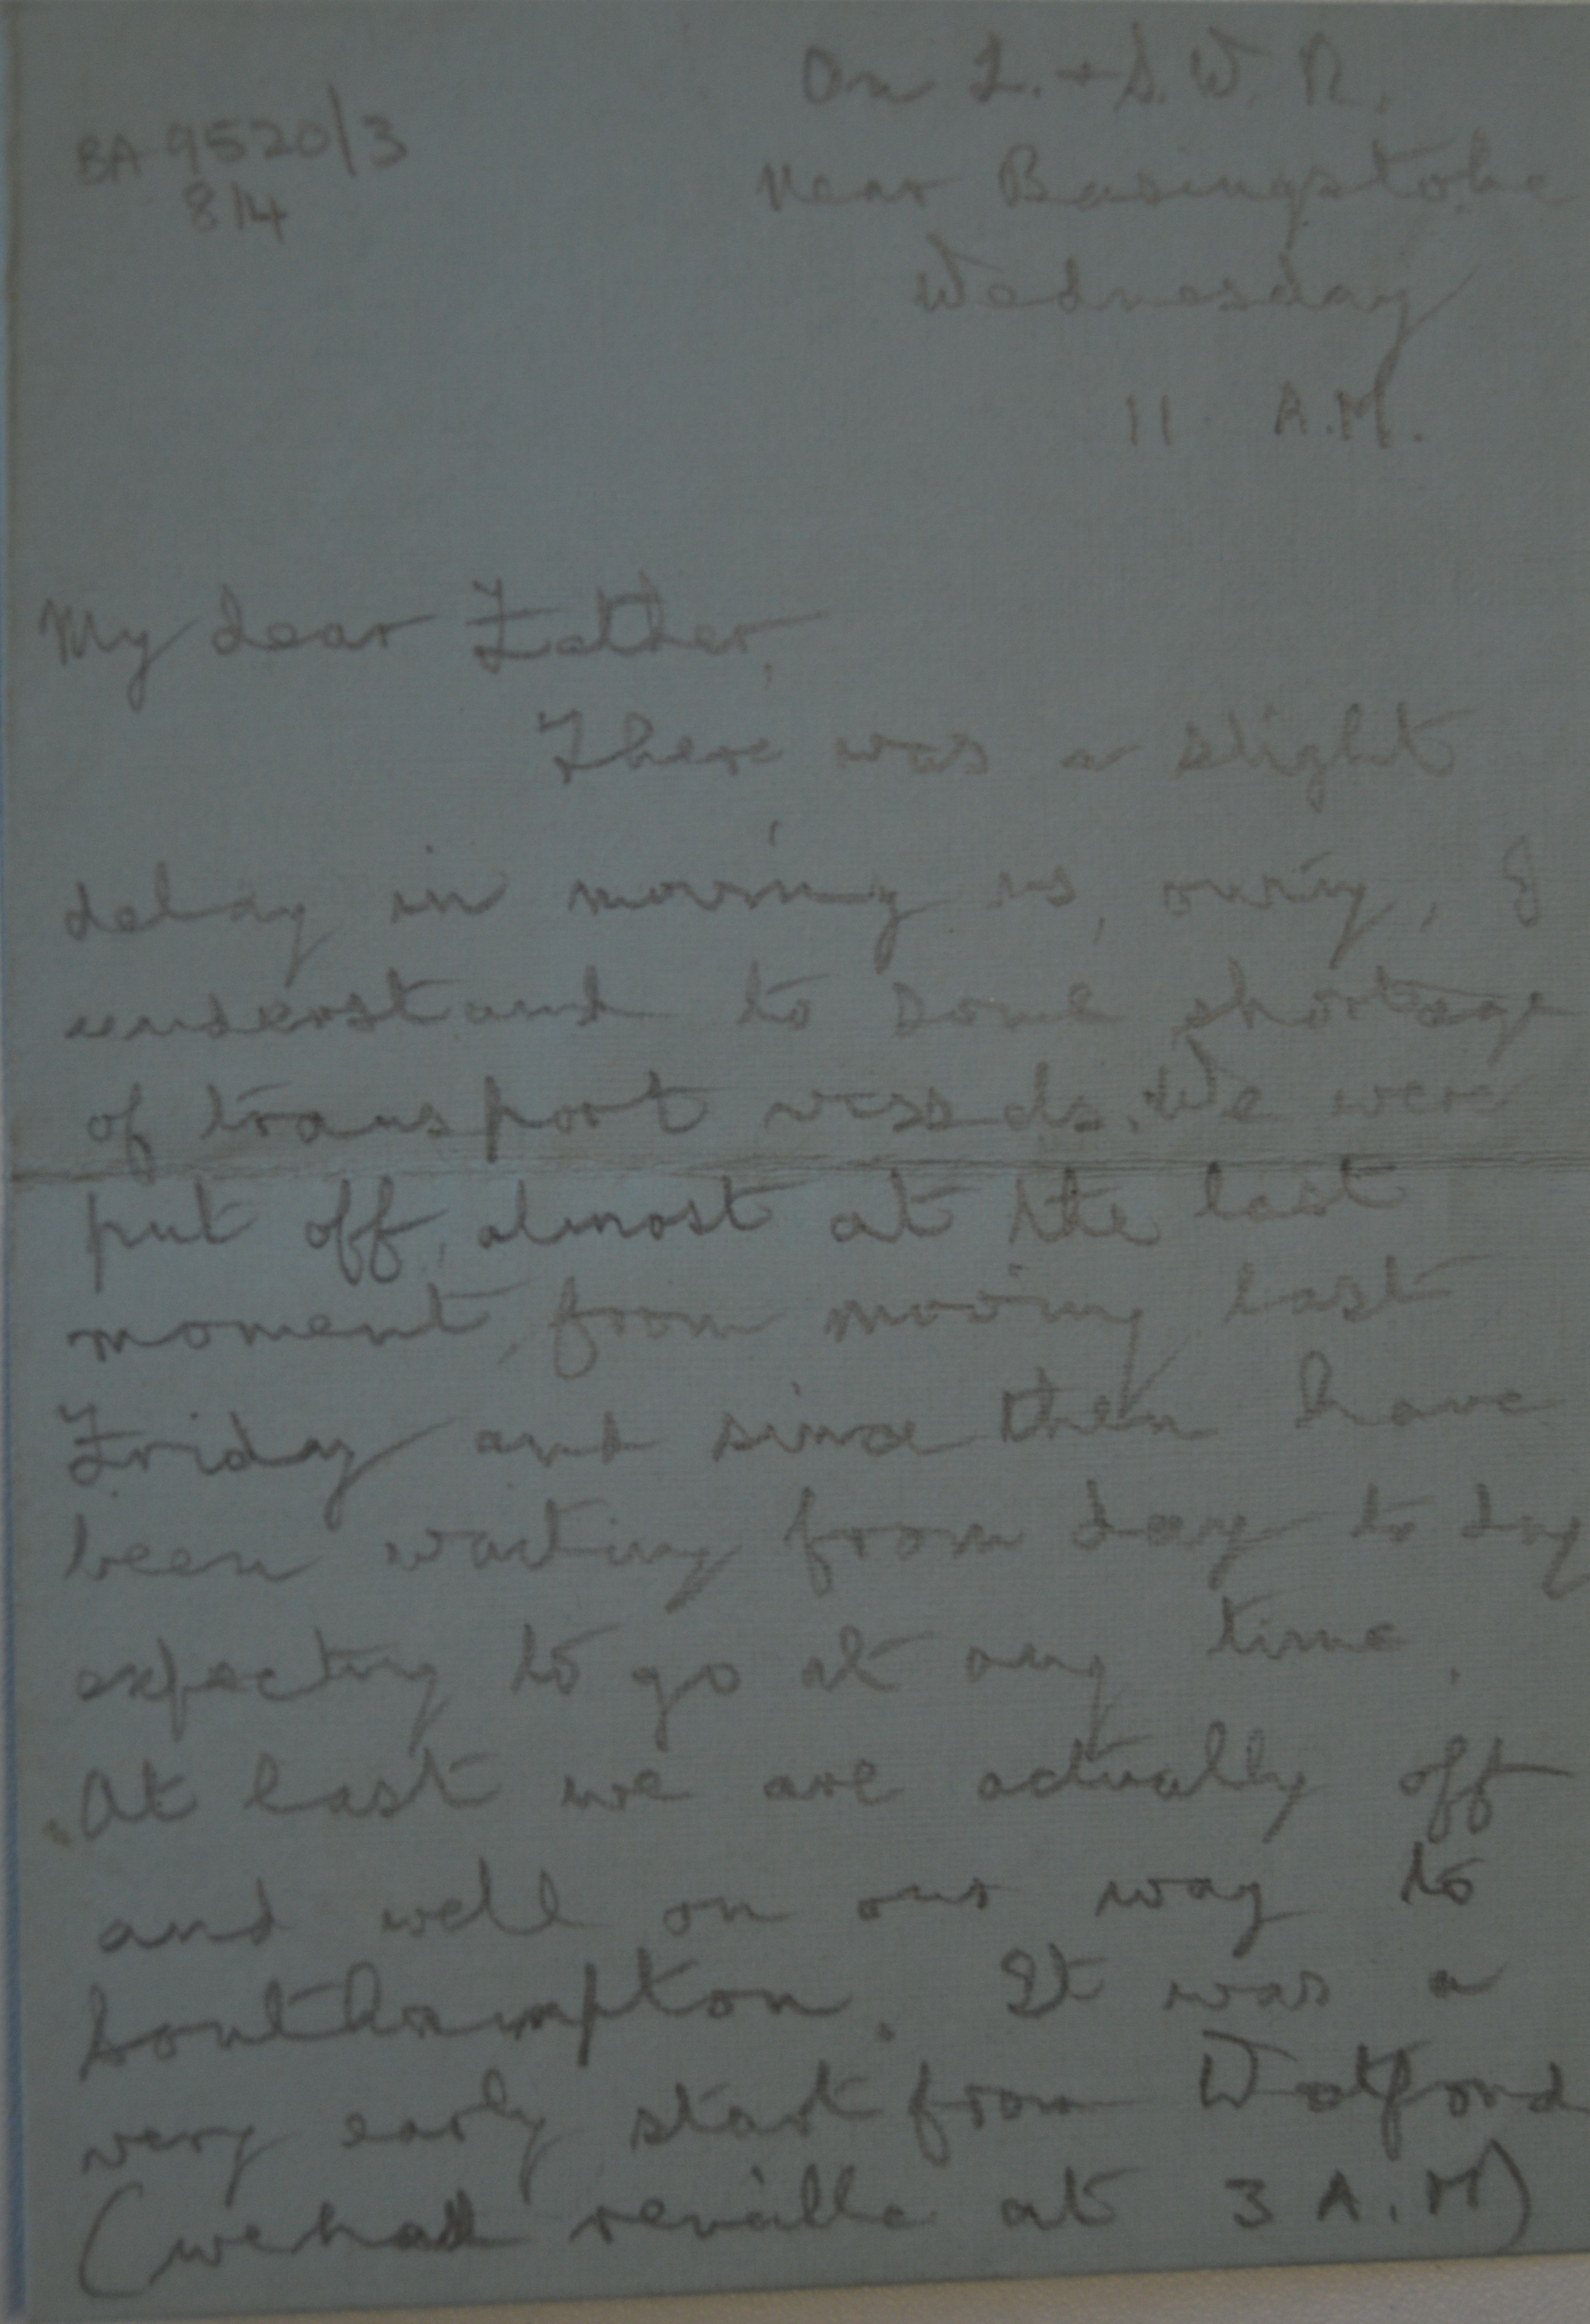 On L. + S. W. R.
BA 9520/3
8/14
near Basingstoke
Wednesday
11 A.M.
My dear Father,
There was a slight
delay in moving us, owing, I
understand to some shortage
of transport vessels. We were
put off, almost at the last
moment, from moving last
Friday and since then have
been waiting from day to day
expecting to go at any time.
At last we are actually off
and well on our way to
Southampton. It was a
very early start from Watford
(we had reveille at 3 A.M)